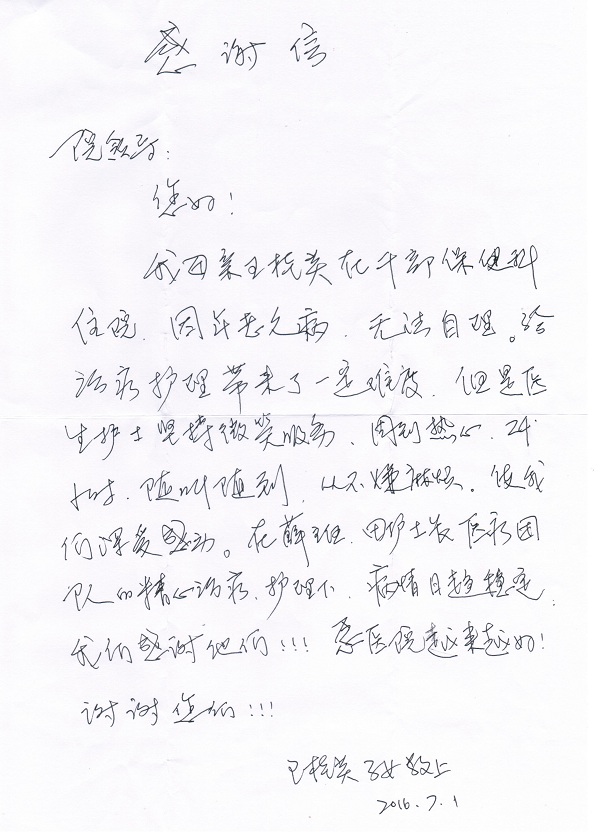 感谢信
院领导:
您好!
我母亲王桂英在干部保健科
住院、因年老久病、无法自理。给
治疗护理带来了一定难度、但是医
生护士坚持微笑服务、周到热心、24
小时、随叫随到、从不嫌麻烦。使我
们深受感动。在薛主任、田护士长医疗团
队的精心治疗、护理下、病情日趋稳定、
我们感谢他们!!!愿医院越来越好!
谢谢您们!!!
王桂英子女敬上
2016.7.1